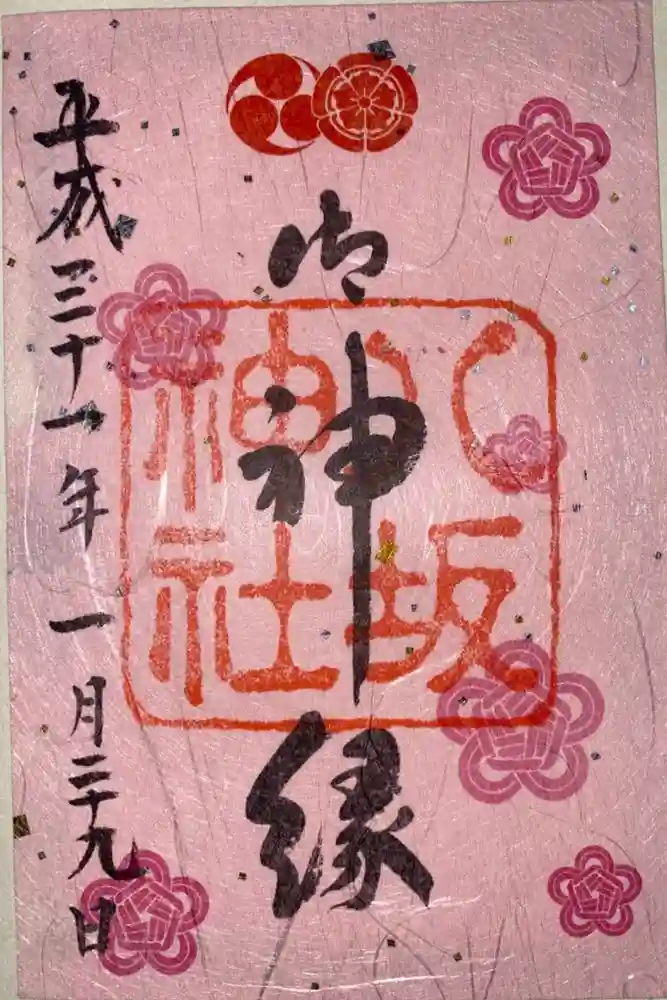 御神縁
八坂
神社
平成三十一年一月二十九日